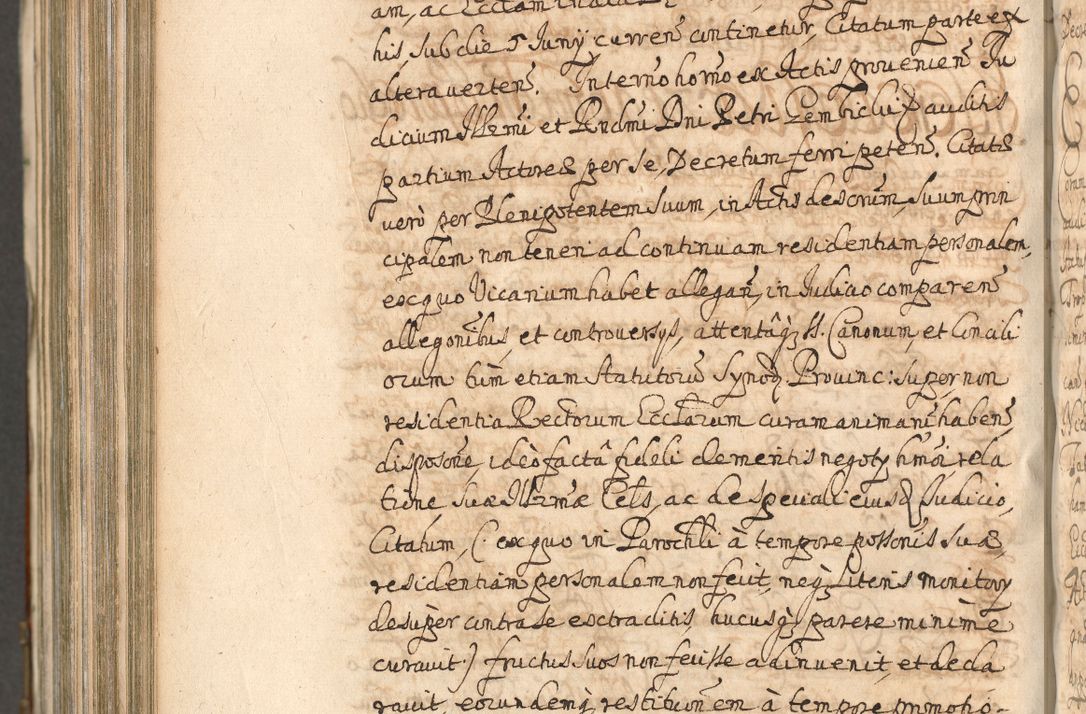 am, ac Ecclam
his, sub die 5 Junÿ curren̄ continetur, Citatum parte ex
altera verten̄. In termo hoīno ex Actis provenien̄ Ju
dicium Illrmi et Rndmi Dni Petri Gembicki auditis
partium Actores per se, Decretum ferri peten̄. Citatg
verò per Plenipotentem suum, in Actis descriūm, suum prin
cipalem non teneri ad continuam residentiam personalem,
ex quo Vicarium habet allegan̄, in Judicio comparen̄
allegōnibus, et controversÿs, attentâq; SS. Canonum, et Concili
orum tùm etiam Statutorū Synod. Provinc: super non
residentia Rectorum Ecclārum curam animarū haben̄,
disposōne, ideò factâ fideli de mentis negotÿ hmōi rela
tione, suæ Illrmæ Cels, ac de speciali eius Judicio,
Citatum, (. ex quo in Parochli à tempore possonis suæ,
residentiam personalem non fecit, neq; Literis monitorÿ
desùper contra se extraditis, hucusq; parere minimè
curavit.) fructus suos non fecisse adinvenit, et decla
ravit, eorundemq; restitutiōnem à tempore